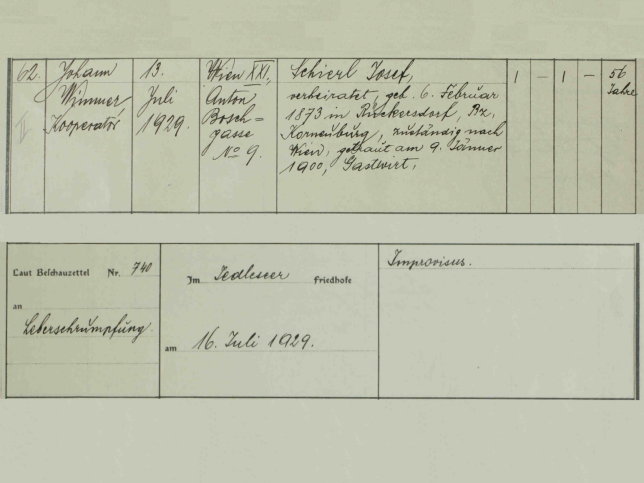 62.
II
Johann
Wimmer
Kooperator
13.
Juli
1929.
Wien XXI,
Anton
Bosch=
gasse
No 9.
Schierl Josef,
verheiratet, geb. 6. Februar
1873 in Rückersdorf, Bz.
Korneuburg, zuständig nach
Wien, getraut am 9. Jänner
1900, Gastwirt.
1 – 1 –
56
Jahre
Laut Beschauzettel Nr. 740
an
Leberschrumpfung.
Im Jedleseer Friedhofe
am 16. Juli 1929.
Improvisus.